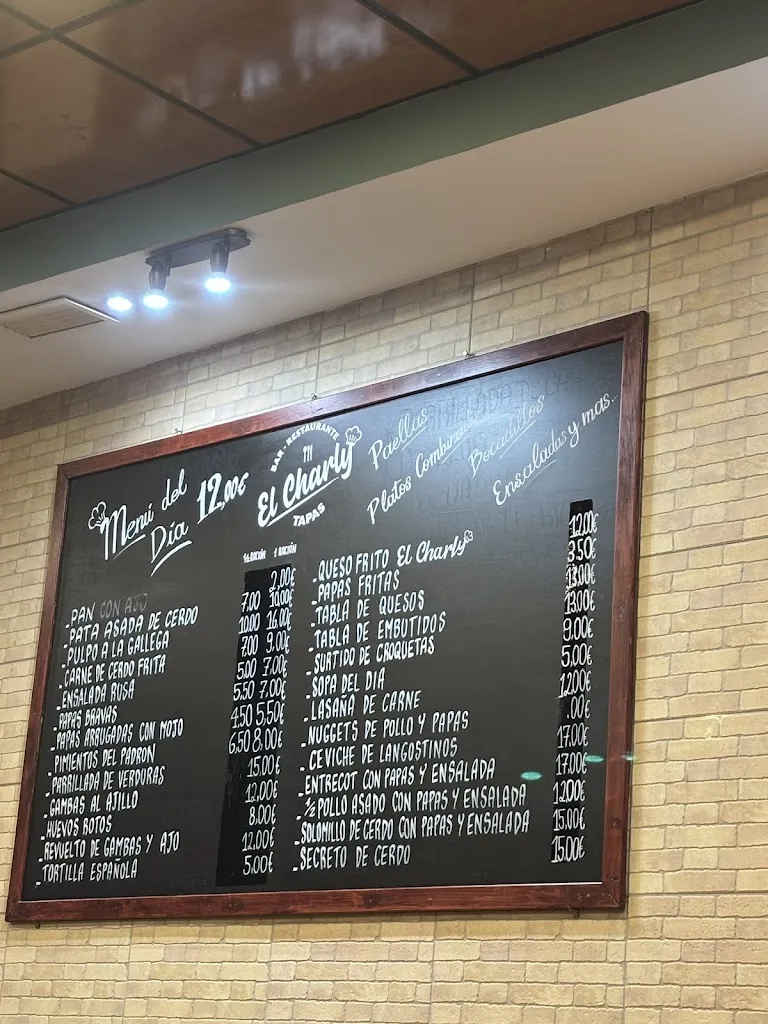 Menú del Día 12,00€
BAR - RESTAURANTE
El Charly
TAPAS
Paellas
Platos Combinados
Bocadillos
Ensaladas y mas..
½ RACIÓN 1 RACIÓN
- PAN CON AJO 2,00€
- PATA ASADA DE CERDO 7.00 10.00€
- PULPO A LA GALLEGA 10.00 16.00€
- CARNE DE CERDO FRITA 7.00 9.00€
- ENSALADA RUSA 5.00 7.00€
- PAPAS BRAVAS 5.50 7.00€
- PAPAS ARRUGADAS CON MOJO 4.50 5.50€
- PIMIENTOS DEL PADRON 6.50 8.00€
- PARRILLADA DE VERDURAS 15.00€
- GAMBAS AL AJILLO 12.00€
- HUEVOS ROTOS 8.00€
- REVUELTO DE GAMBAS Y AJO 12.00€
- TORTILLA ESPAÑOLA 5.00€
- QUESO FRITO El Charly 12.00€
- PAPAS FRITAS 3.50€
- TABLA DE QUESOS 13.00€
- TABLA DE EMBUTIDOS 13.00€
- SURTIDO DE CROQUETAS 9.00€
- SOPA DEL DIA 5.00€
- LASAÑA DE CARNE 12.00€
- NUGGETS DE POLLO Y PAPAS .00€
- CEVICHE DE LANGOSTINOS 17.00€
- ENTRECOT CON PAPAS Y ENSALADA 17.00€
- ½ POLLO ASADO CON PAPAS Y ENSALADA 12.00€
- SOLOMILLO DE CERDO CON PAPAS Y ENSALADA 15.00€
- SECRETO DE CERDO 15.00€